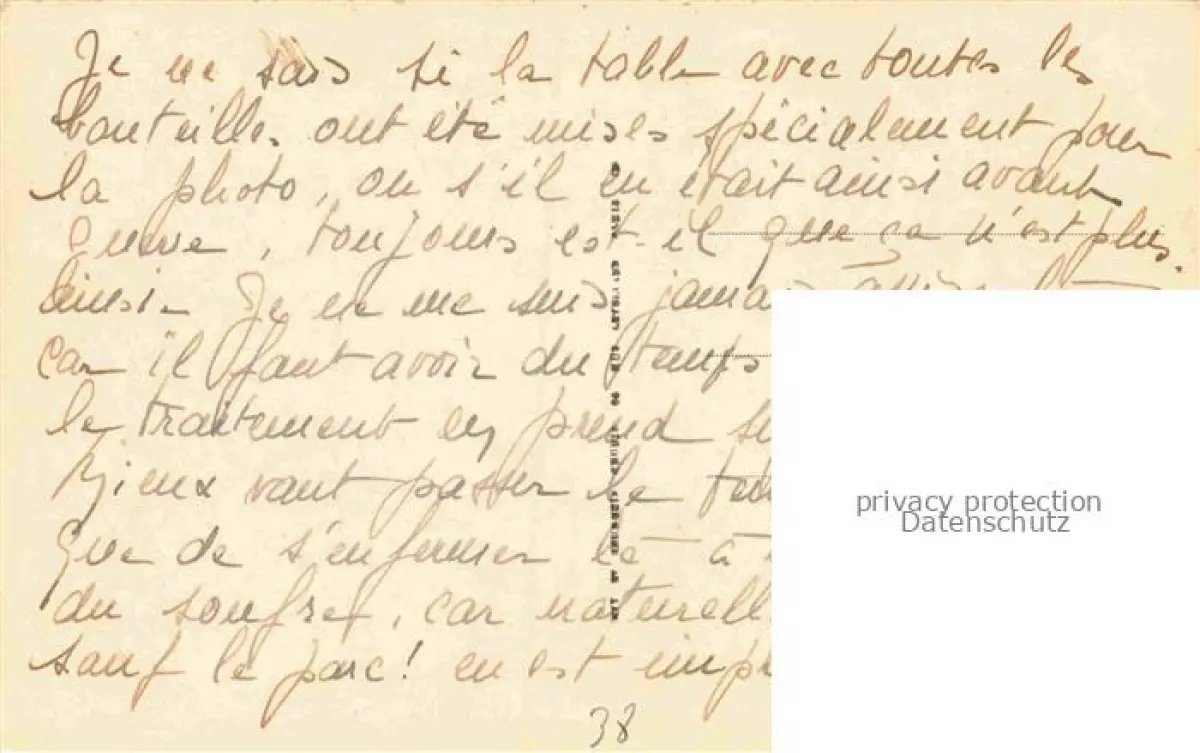 Je ne sais si la table avec toutes les
bouteilles ont été mises spécialement pour
la photo, ou s'il en était ainsi avant
guerre, toujours est-il que ça n'est plus
ainsi. Je ne me suis jamais
car il faut avoir du temps
le traitement en prend
Mieux vaut passer le
que de s'enfermer là à
du soufre, car
sauf le parc! en est
38
privacy protection
Datenschutz